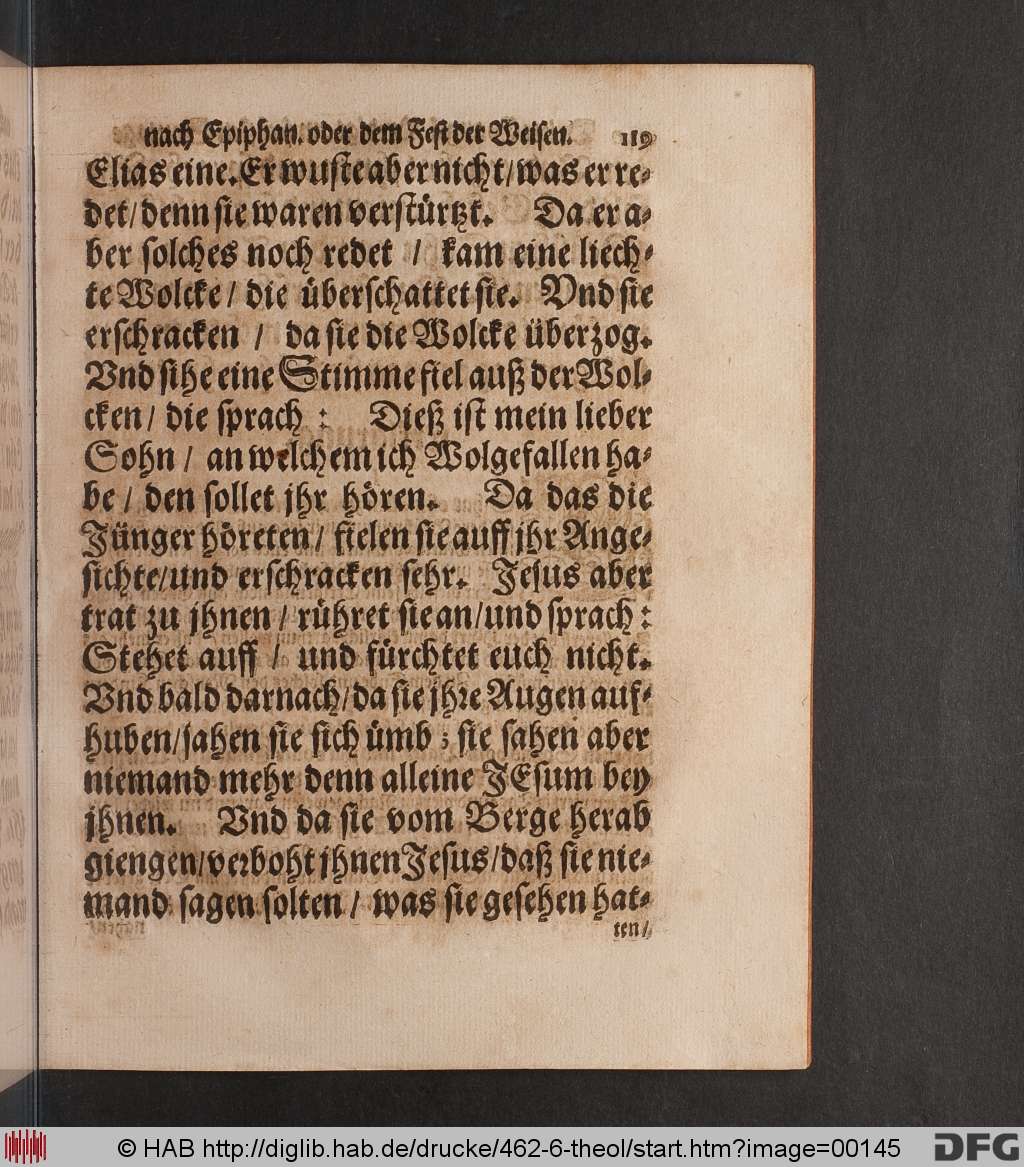 nach Epiphan. oder dem Fest der Weisen. 119
Elias eine. Er wuste aber nicht / was er re-
det / denn sie waren verstürtzt. Da er a-
ber solches noch redet / kam eine liech-
te Wolcke / die überschattet sie. Vnd sie
erschracken / da sie die Wolcke überzog.
Vnd sihe eine Stimme fiel auß der Wol-
cken / die sprach : Dieß ist mein lieber
Sohn / an welchem ich Wolgefallen ha-
be / den sollet jhr hören. Da das die
Jünger höreten / fielen sie auff jhr Ange-
sichte / und erschracken sehr. Jesus aber
trat zu jhnen / rühret sie an / und sprach :
Stehet auff / und fürchtet euch nicht.
Vnd bald darnach / da sie jhre Augen auf-
huben / sahen sie sich ümb ; sie sahen aber
niemand mehr denn alleine JEsum bey
jhnen. Vnd da sie vom Berge herab
giengen / verboht jhnen Jesus / daß sie nie-
mand sagen solten / was sie gesehen hat-
ten /
© HAB http://diglib.hab.de/drucke/462-6-theol/start.htm?image=00145
DFG